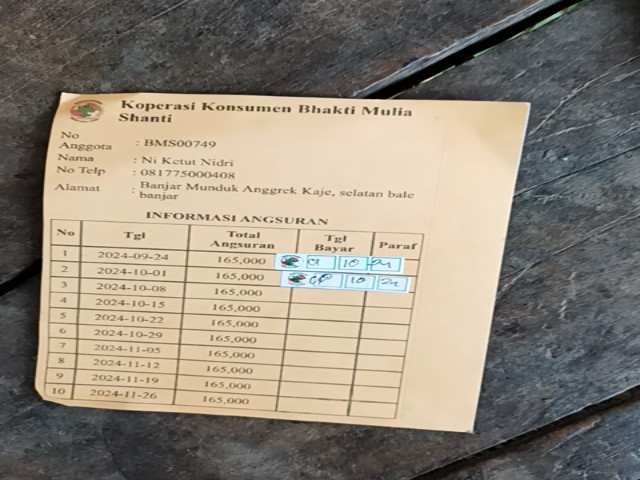 Koperasi Konsumen Bhakti Mulia
Shanti
No
Anggota : BMS00749
Nama : Ni Ketut Nidri
No Telp : 081775000408
Alamat : Banjar Munduk Anggrek Kaje, selatan bale
banjar
INFORMASI ANGSURAN
No Tgl Total Angsuran Tgl Bayar Paraf
1 2024-09-24 165,000 01 10 24
2 2024-10-01 165,000 10 24
3 2024-10-08 165,000
4 2024-10-15 165,000
5 2024-10-22 165,000
6 2024-10-29 165,000
7 2024-11-05 165,000
8 2024-11-12 165,000
9 2024-11-19 165,000
10 2024-11-26 165,000